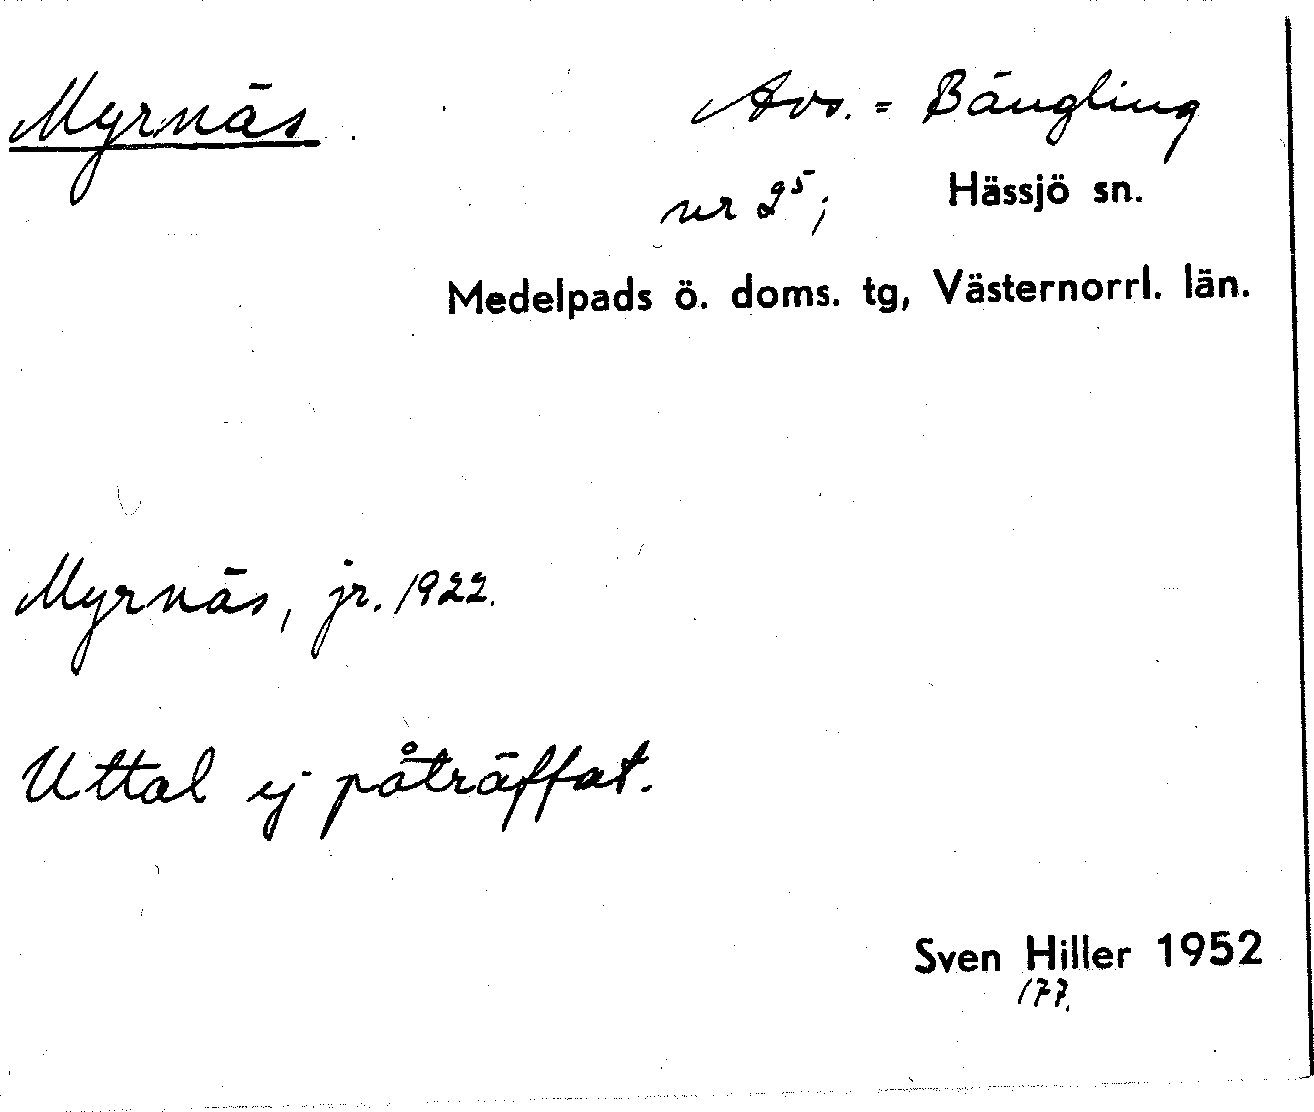 Myrnäs. Avs. = Bängling
nr 2⁵; Hässjö sn.
Medelpads ö. doms. tg, Västernorrl. län.
Myrnäs, jr. 1922.
Uttal ej påträffat.
Sven Hiller 1952
177.